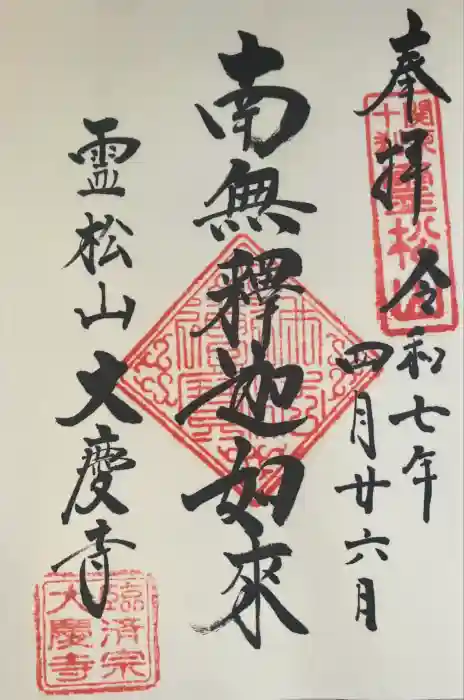 奉拝 令和七年
四月廿六月
南無釋迦如來
霊松山大慶寺
関東十刹
霊松山
臨済宗
大慶寺